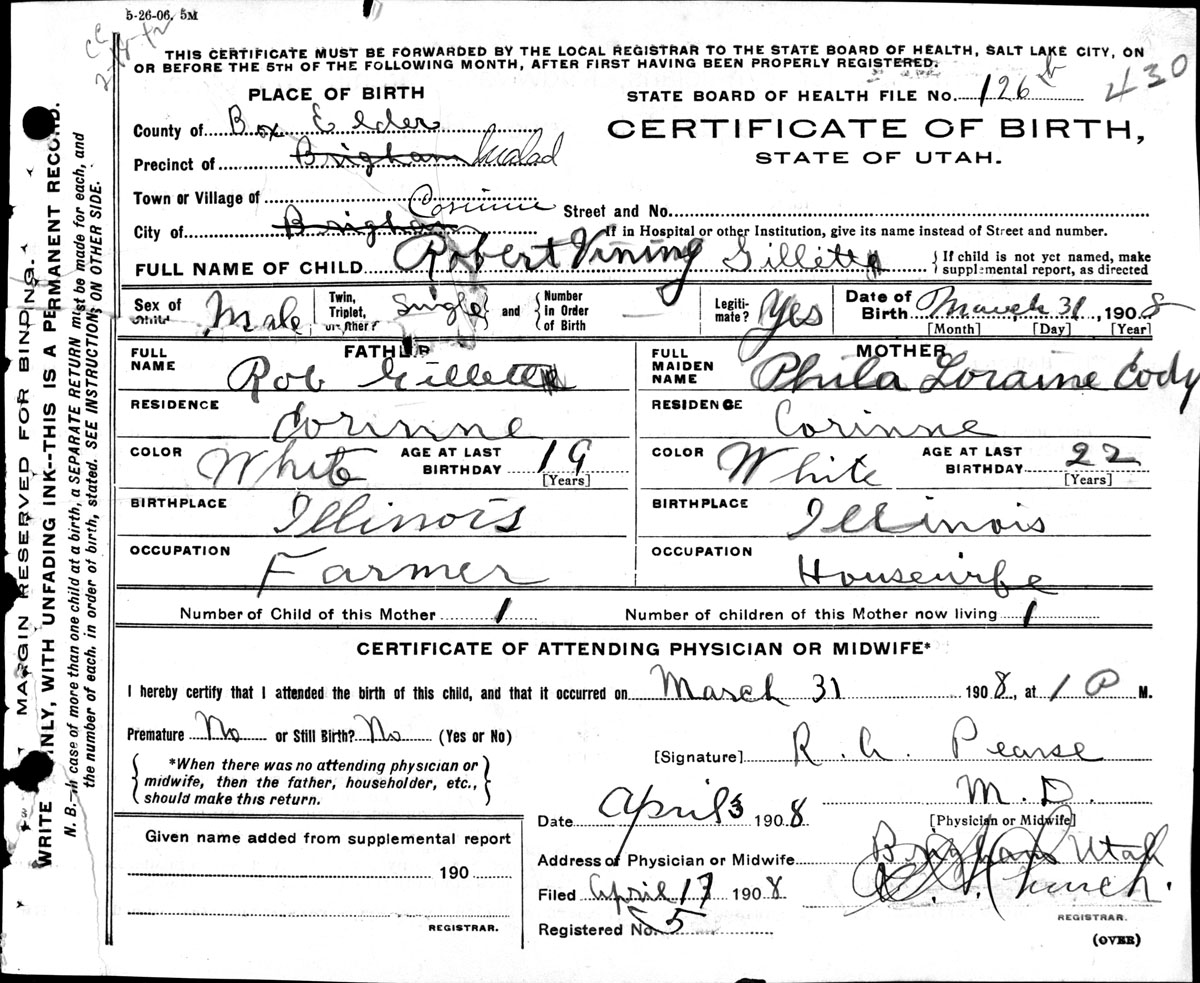 5-26-06. 5M
THIS CERTIFICATE MUST BE FORWARDED BY THE LOCAL REGISTRAR TO THE STATE BOARD OF HEALTH, SALT LAKE CITY, ON
OR BEFORE THE 5TH OF THE FOLLOWING MONTH, AFTER FIRST HAVING BEEN PROPERLY REGISTERED.
430
PLACE OF BIRTH
STATE BOARD OF HEALTH FILE No. 126 b
County of Box Elder
CERTIFICATE OF BIRTH,
STATE OF UTAH.
Precinct of Brigham Malad
Town or Village of Corinne
Street and No.
City of Brigham
If in Hospital or other Institution, give its name instead of Street and number.
FULL NAME OF CHILD Robert Vining Gillette
If child is not yet named, make
supplemental report, as directed
Sex of Child Male
Twin, Triplet, or other? Single and Number in Order of Birth
Legiti-mate? Yes
Date of Birth March 31, 1908
[Month] [Day] [Year]
FATHER
FULL NAME Rob Gillette
RESIDENCE Corinne
COLOR White AGE AT LAST BIRTHDAY 19
[Years]
BIRTHPLACE Illinois
OCCUPATION Farmer
MOTHER
FULL MAIDEN NAME Phila Loraine Cody
RESIDENCE Corinne
COLOR White AGE AT LAST BIRTHDAY 22
[Years]
BIRTHPLACE Illinois
OCCUPATION Housewife
Number of Child of this Mother 1 Number of children of this Mother now living 1
CERTIFICATE OF ATTENDING PHYSICIAN OR MIDWIFE*
I hereby certify that I attended the birth of this child, and that it occurred on March 31 1908, at 1 P M.
Premature No or Still Birth? No (Yes or No)
*When there was no attending physician or
midwife, then the father, householder, etc.,
should make this return.
[Signature] R. A. Pearse
M.D.
[Physician or Midwife]
Date April 3 1908
Address of Physician or Midwife Brigham Utah
Filed April 17 1908
REGISTRAR.
Registered No. 5
(OVER)
Given name added from supplemental report
190
REGISTRAR.
MARGIN RESERVED FOR BINDING.
WRITE PLAINLY, WITH UNFADING INK--THIS IS A PERMANENT RECORD.
N. B.--In case of more than one child at a birth, a SEPARATE RETURN must be made for each, and
the number of each, in order of birth, stated. SEE INSTRUCTIONS ON OTHER SIDE.